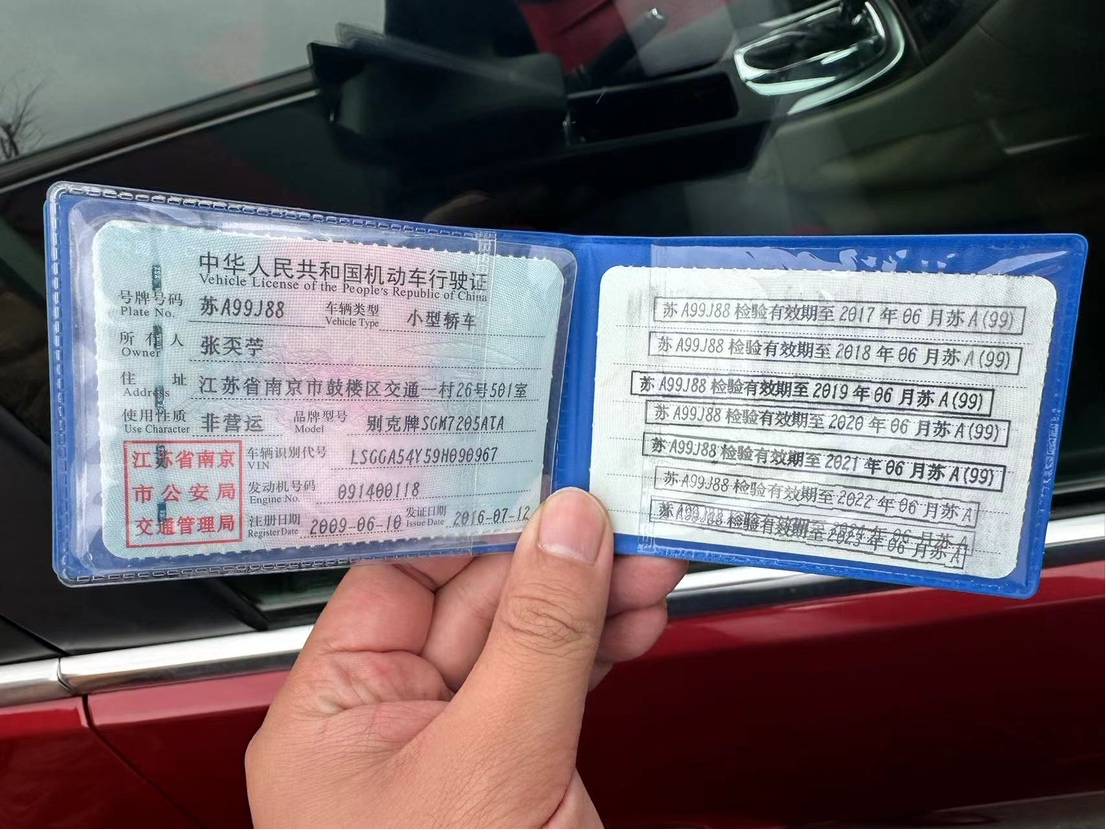 中华人民共和国机动车行驶证
Vehicle License of the People's Republic of China
号牌号码 苏A99J88 车辆类型 小型轿车
Plate No. Vehicle Type
所有人 张奕苧
Owner
住址 江苏省南京市鼓楼区交通一村26号501室
Address
使用性质 非营运 品牌型号 别克牌SGM7205ATA
Use Character Model
江苏省南京
市公安局
交通管理局
车辆识别代号 LSGGA54Y59H090967
VIN
发动机号码 091400118
Engine No.
注册日期 2009-06-10 发证日期 2016-07-12
Register Date Issue Date
苏A99J88检验有效期至2017年06月苏A(99)
苏A99J88检验有效期至2018年06月苏A(99)
苏A99J88检验有效期至2019年06月苏A(99)
苏A99J88检验有效期至2020年06月苏A(99)
苏A99J88检验有效期至2021年06月苏A(99)
苏A99J88检验有效期至2022年06月苏A
苏A99J88检验有效期至2024年06月苏A
2023年06月苏A